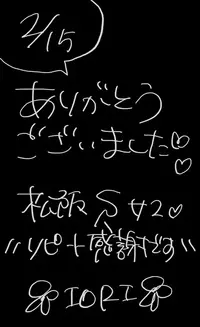 2/15
ありがとう
ございました♡♡
松阪Sサ2♡
〃リピート感謝です〃
IORI